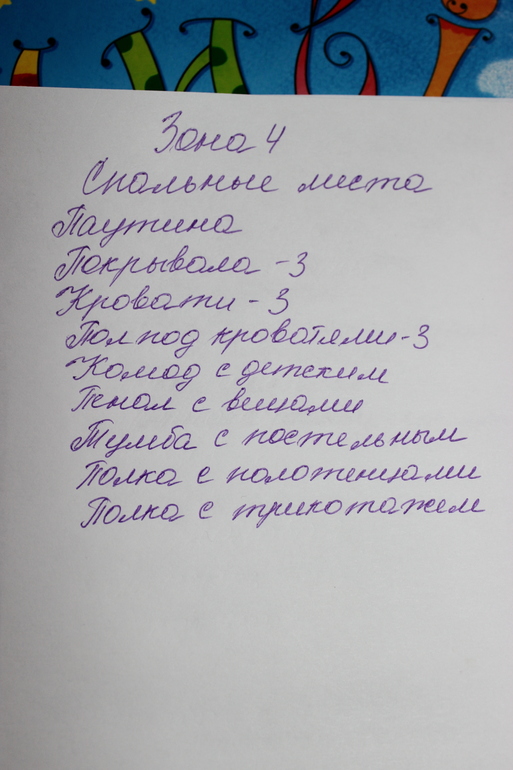 Зона 4
Спальные места
Паутина
Покрывала - 3
Кровати - 3
Пол под кроватями - 3
Комод с детским
Пенал с вещами
Тумба с постельным
Полка с полотенцами
Полка с трикотажем